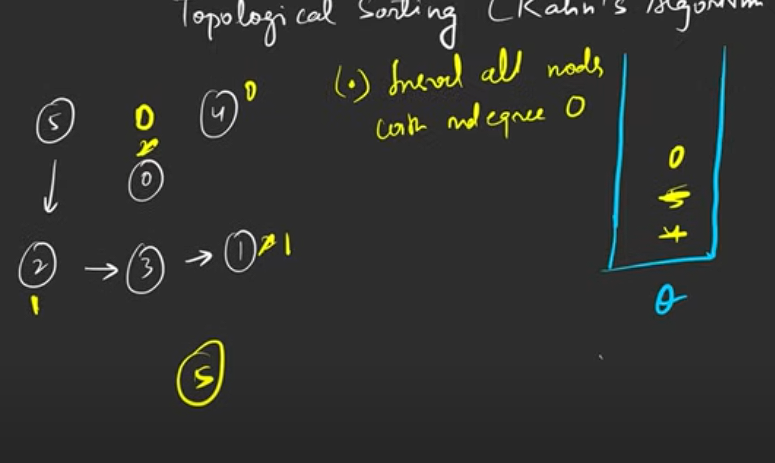 Topological Sorting (Kahn's Algorithm
(•) Insert all nodes
with indegree 0
5
0
2
4
0
0
2
1
3
1
2
1
5
0
5
4
Q